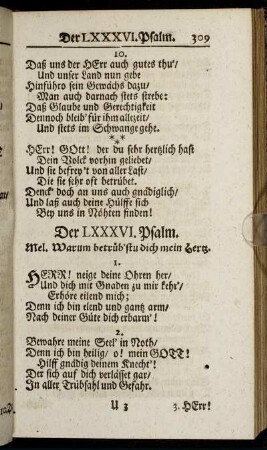 Der LXXXVI. Psalm. 309
10.
Daß uns der HErr auch gutes thu'/
Und unser Land nun gebe
Hinführo sein Gewächs dazu/
Man auch darnach stets strebe:
Daß Glaube und Gerechtigkeit
Dennoch bleib' für ihm allezeit/
Und stets im Schwange gehe.
***
HErr! GOtt! der du sehr hertzlich hast
Dein Volck vorhin geliebet/
Und sie befrey't von aller Last/
Die sie sehr oft betrübet.
Denck' doch an uns auch gnädiglich/
Und laß auch deine Hülffe sich
Bey uns in Nöhten finden!
Der LXXXVI. Psalm.
Mel. Warum betrüb'stu dich mein Hertz.
1.
HERR! neige deine Ohren her/
Und dich mit Gnaden zu mir kehr'/
Erhöre eilend mich;
Denn ich bin elend und gantz arm/
Nach deiner Güte dich erbarm'!
2.
Bewahre meine Seel' in Noth/
Denn ich bin heilig/ o! mein GOTT!
Hilff gnädig deinem Knecht'!
Der sich auf dich verlässet gar/
In aller Trübsahl und Gefahr.
U 3 3. HErr!